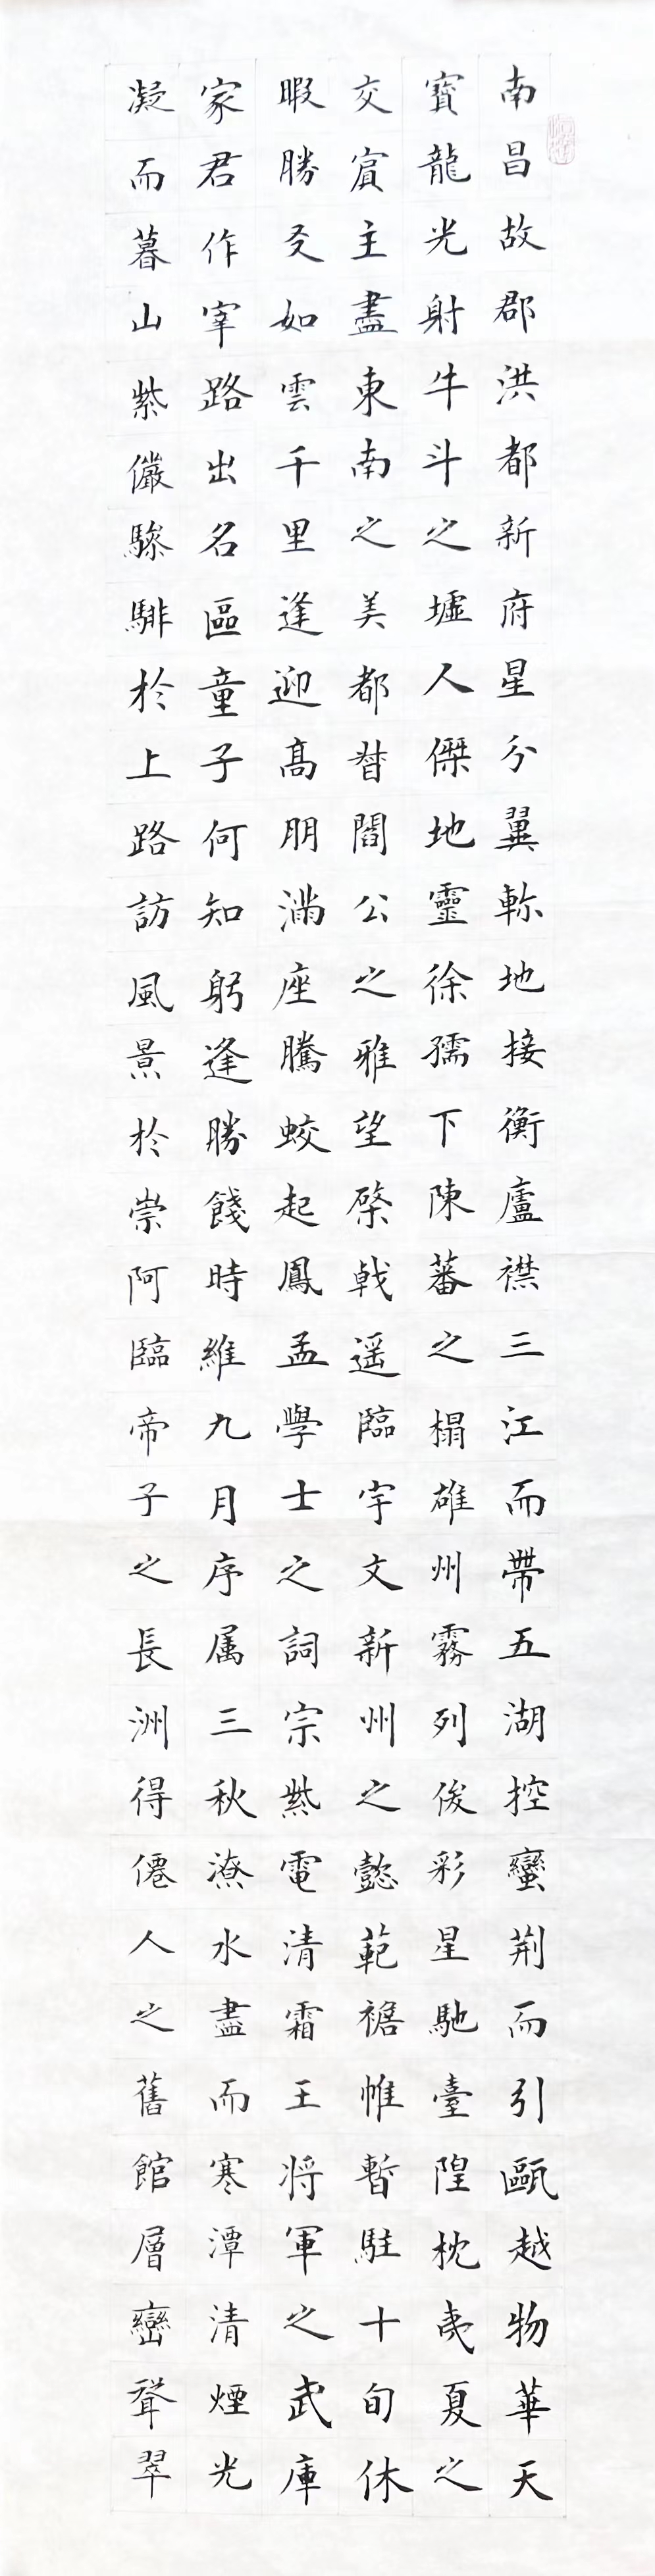 南昌故郡洪都新府星分翼軫地接衡廬襟三江而帶五湖控蠻荊而引甌越物華天
寶龍光射牛斗之墟人傑地靈徐孺下陳蕃之榻雄州霧列俊彩星馳臺隍枕夷夏之
交賓主盡東南之美都督閻公之雅望棨戟遥臨宇文新州之懿範襜帷暫駐十旬休
暇勝友如雲千里逢迎髙朋滿座騰蛟起鳳孟學士之詞宗紫電清霜王将軍之武庫
家君作宰路出名區童子何知躬逢勝餞時維九月序属三秋潦水盡而寒潭清煙光
凝而暮山紫儼驂騑於上路訪風景於崇阿臨帝子之長洲得僊人之舊館層巒聳翠